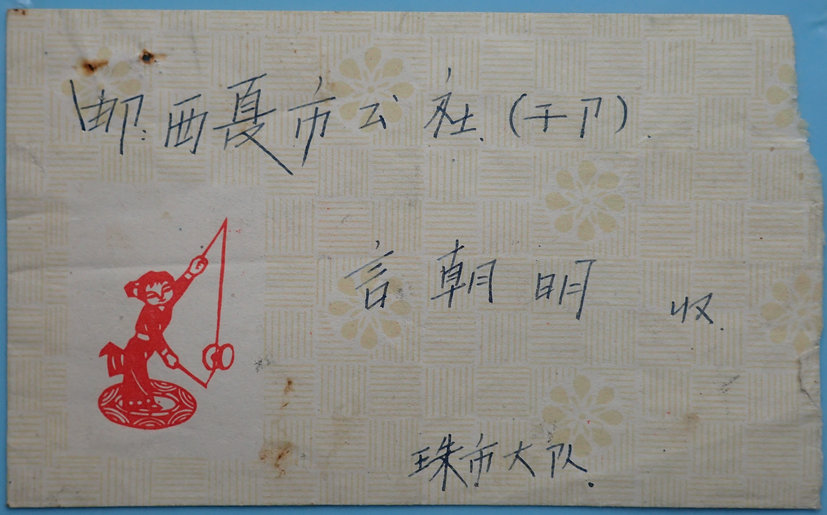 邮:西夏市公社(干卩).
言朝明 收.
珠市大队.